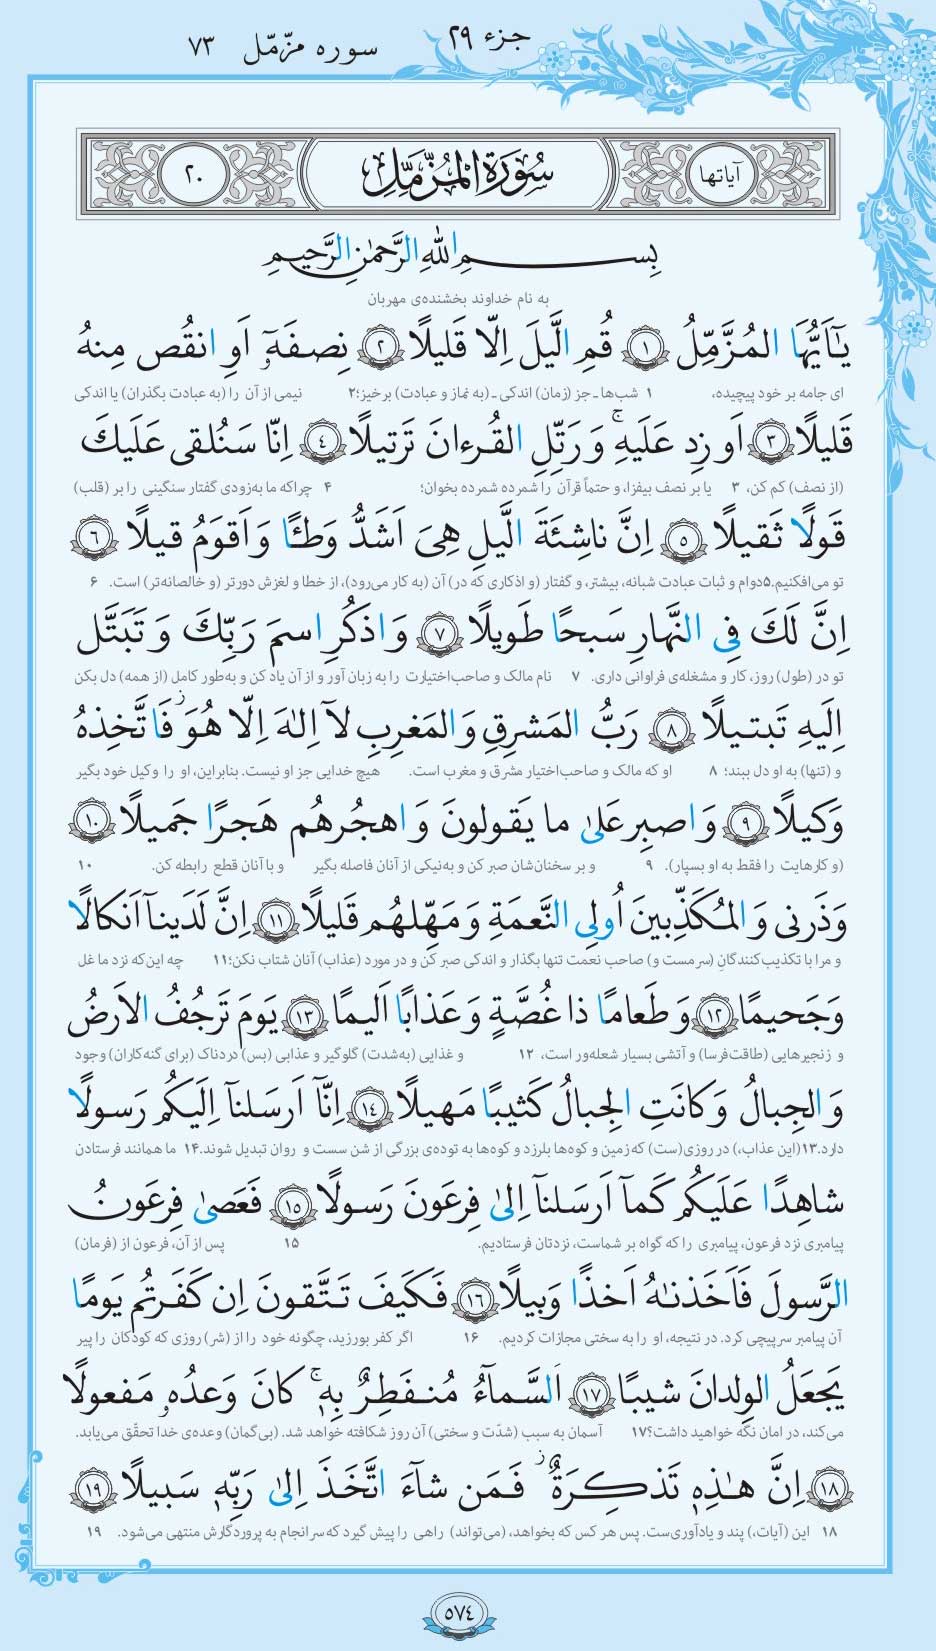 جزء ۲۹
سوره مزّمّل ۷۳
آیاتها سُورَةُ المُزَّمِّل ۲۰
بِسمِ اللّٰهِ الرَّحمٰنِ الرَّحیمِ
به نام خداوند بخشنده‌ی مهربان
یٰٓاَیُّهَا المُزَّمِّلُ ﴿۱﴾ قُمِ الَّیلَ اِلّا قَلیلًا ﴿۲﴾ نِصفَهٗٓ اَوِ انقُص مِنهُ
ای جامه بر خود پیچیده، ۱ شب‌ها ـ جز (زمان) اندکی ـ (به نماز و عبادت) برخیز؛۲ نیمی از آن را (به عبادت بگذران) یا اندکی
قَلیلًا ﴿۳﴾ اَو زِد عَلَیهِ ۚ وَ رَتِّلِ القُرءانَ تَرتیلًا ﴿۴﴾ اِنّا سَنُلقی عَلَیكَ
(از نصف) کم کن، ۳ یا بر نصف بیفزا، و حتماً قرآن را شمرده شمرده بخوان؛ ۴ چراکه ما به‌زودی گفتار سنگینی را بر (قلب)
قَولًا ثَقیلًا ﴿۵﴾ اِنَّ ناشِئَةَ الَّیلِ هِیَ اَشَدُّ وَطئًا وَ اَقوَمُ قیلًا ﴿۶﴾
تو می‌افکنیم.۵ دوام و ثبات عبادت شبانه، بیشتر، و گفتار (و اذکاری که در) آن (به کار می‌رود)، از خطا و لغزش دورتر (و خالصانه‌تر) است. ۶
اِنَّ لَكَ فِی النَّهارِ سَبحًا طَویلًا ﴿۷﴾ وَ اذكُرِ اسمَ رَبِّكَ وَ تَبَتَّل
تو در (طول) روز، کار و مشغله‌ی فراوانی داری. ۷ نام مالک و صاحب‌اختیارت را به زبان آور و از آن یاد کن و به‌طور کامل (از همه) دل بکن
اِلَیهِ تَبتیلًا ﴿۸﴾ رَبُّ المَشرِقِ وَ المَغرِبِ لآ اِلٰهَ اِلّا هُوَ ز فَاتَّخِذهُ
و (تنها) به او دل ببند؛ ۸ او که مالک و صاحب‌اختیار مشرق و مغرب است. هیچ خدایی جز او نیست. بنابراین، او را وکیل خود بگیر
وَكیلًا ﴿۹﴾ وَ اصبِر عَلیٰ ما یَقولونَ وَ اهجُرهُم هَجرًا جَمیلًا ﴿۱۰﴾
(و کارهایت را فقط به او بسپار). ۹ و بر سخنان‌شان صبر کن و به‌نیکی از آنان فاصله بگیر و با آنان قطع رابطه کن. ۱۰
وَ ذَرنی وَ المُكَذِّبینَ اُولِی النَّعمَةِ وَ مَهِّلهُم قَلیلًا ﴿۱۱﴾ اِنَّ لَدَینآ اَنكالًا
و مرا با تکذیب‌کنندگانِ (سرمست و) صاحب نعمت تنها بگذار و اندکی صبر کن و در مورد (عذاب) آنان شتاب نکن؛۱۱ چه این‌که نزد ما غل
وَ جَحیمًا ﴿۱۲﴾ وَ طَعامًا ذا غُصَّةٍ وَ عَذابًا اَلیمًا ﴿۱۳﴾ یَومَ تَرجُفُ الاَرضُ
و زنجیرهایی (طاقت‌فرسا) و آتشی بسیار شعله‌ور است، ۱۲ و غذایی (به‌شدت) گلوگیر و عذابی (بس) دردناک (برای گنه‌کاران) وجود
وَ الجِبالُ وَ كانَتِ الجِبالُ كَثیبًا مَهیلًا ﴿۱۴﴾ اِنّآ اَرسَلنآ اِلَیكُم رَسولًا
دارد.۱۳ (این عذاب،) در روزی(ست) که زمین و کوه‌ها بلرزد و کوه‌ها به توده‌ی بزرگی از شن سست و روان تبدیل شوند.۱۴ ما همانند فرستادن
شاهِدًا عَلَیكُم كَمآ اَرسَلنآ اِلیٰ فِرعَونَ رَسولًا ﴿۱۵﴾ فَعَصیٰ فِرعَونُ
پیامبری نزد فرعون، پیامبری را که گواه بر شماست، نزدتان فرستادیم. ۱۵ پس از آن، فرعون از (فرمان)
الرَّسولَ فَاَخَذنٰهُ اَخذًا وَبیلًا ﴿۱۶﴾ فَكَیفَ تَتَّقونَ اِن كَفَرتُم یَومًا
آن پیامبر سرپیچی کرد. در نتیجه، او را به سختی مجازات کردیم. ۱۶ اگر کفر بورزید، چگونه خود را از (شر) روزی که کودکان را پیر
یَجعَلُ الوِلدانَ شیبًا ﴿۱۷﴾ اَلسَّمآءُ مُنفَطِرٌ بِهٖ ۚ كانَ وَعدُهٗ مَفعولًا
می‌کند، در امان نگه خواهید داشت؟۱۷ آسمان به سبب (شدّت و سختی) آن روز شکافته خواهد شد. (بی‌گمان) وعده‌ی خدا تحقّق می‌یابد.
﴿۱۸﴾ اِنَّ هٰذِهٖ تَذكِرَةٌ ز فَمَن شآءَ اتَّخَذَ اِلیٰ رَبِّهٖ سَبیلًا ﴿۱۹﴾
۱۸ این (آیات)، پند و یادآوری‌ست. پس هر کس که بخواهد، (می‌تواند) راهی را پیش گیرد که سرانجام به پروردگارش منتهی می‌شود. ۱۹
۵۷۴